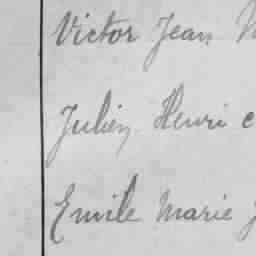 Victor Jean
Julien Henri
Emile Marie